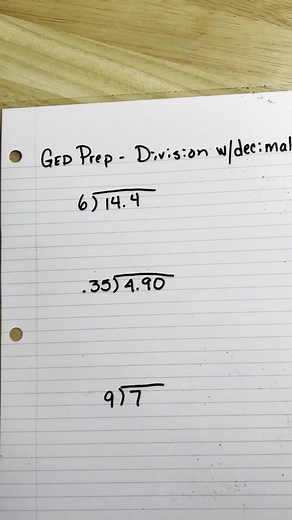 GED Prep - Division w/decimal
6)14.4
.35)4.90
9)7